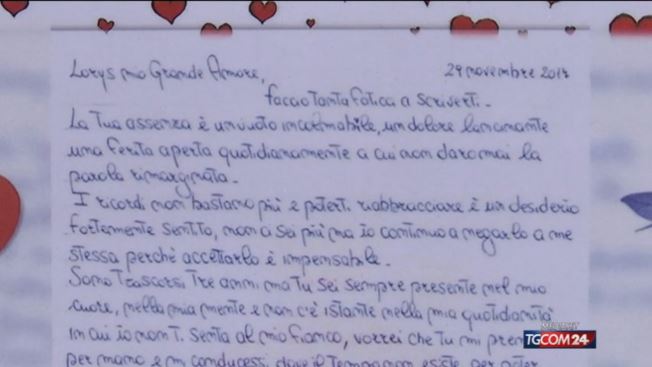 Lorys mio Grande Amore, 29 novembre 2017
faccio tanta fatica a scriverti.
La Tua assenza è un vuoto incolmabile, un dolore lancinante
una ferita aperta quotidianamente a cui non darò mai la
parola rimarginata.
I ricordi non bastano più e poterti riabbracciare è un desiderio
fortemente sentito, non ci sei più ma io continuo a negarlo a me
stessa perchè accettarlo è impensabile.
Sono Trascorsi Tre anni ma tu sei sempre presente nel mio
cuore, nella mia mente e non c'è istante nella mia quotidianità
in cui io non Ti senta al mio fianco, vorrei che tu mi
per mano e mi conducessi dove il Tempo non esiste per poter
TGCOM24